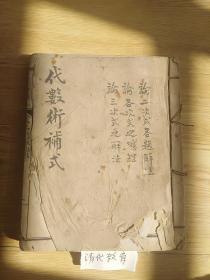 代數術補式
論二次式各題解法
論各次式之解法
論三次式之解法
清代教育